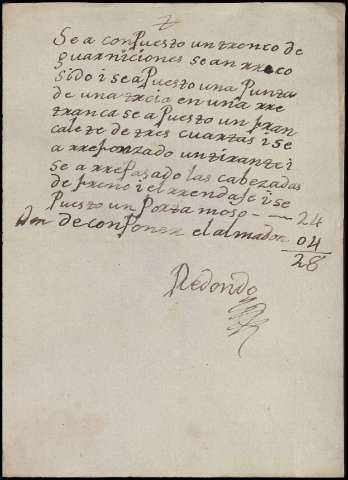 Se a conpuesto un tronco de
guarniciones se an rreco
sido i se a puesto una punta
de una tricia en una rre
tranca se a puesto un fran
calete de tres cuartas i se
a rreforzado un tirante i
se a rrepasado las cabezadas
de freno i el rrendaje i se
puesto un porta moso - 24
de conponer el almador 04
28
Redondo